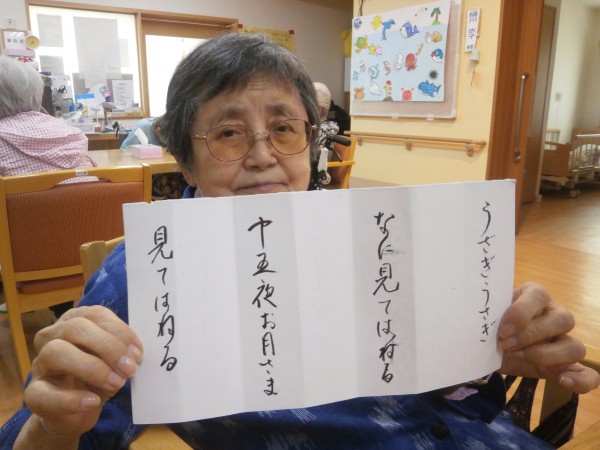 うさぎ、うさぎ
なに見てはねる
十五夜お月さま
見てはねる